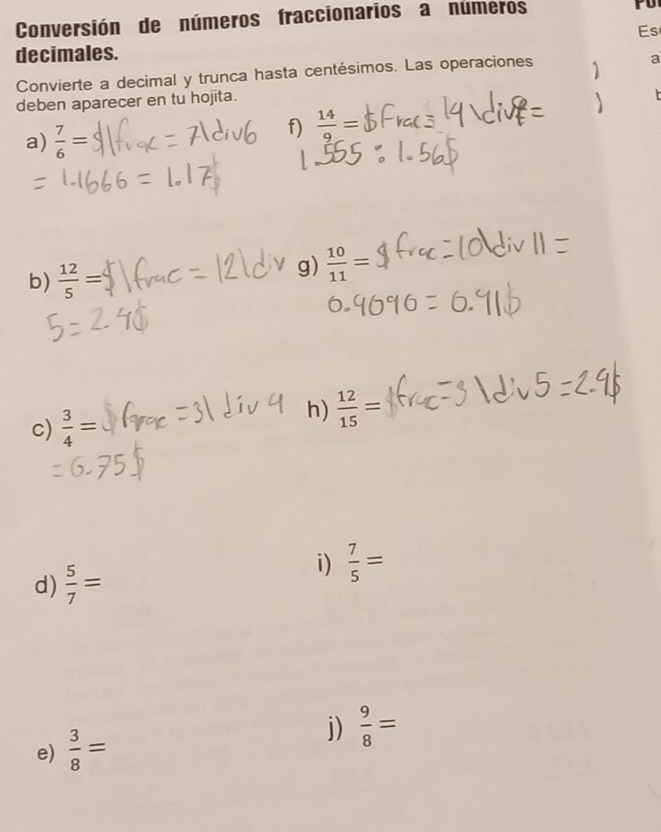 Conversión de números fraccionarios a números
decimales.
Convierte a decimal y trunca hasta centésimos. Las operaciones
deben aparecer en tu hojita.
a) 7/6 = $\frac = 7\div6
= 1.1666 = 1.17$
f) 14/9 = $Frac = 14\div9 =
1.555 : 1.56$
b) 12/5 = $\frac = 12\div
5 = 2.4$
g) 10/11 = $frac = 10\div 11 =
0.9090 = 0.91$
c) 3/4 = $frac = 3\div 4
= 0.75$
h) 12/15 = $frac = 3\div 5 = 2.4$
d) 5/7 =
i) 7/5 =
e) 3/8 =
j) 9/8 =
Es
a